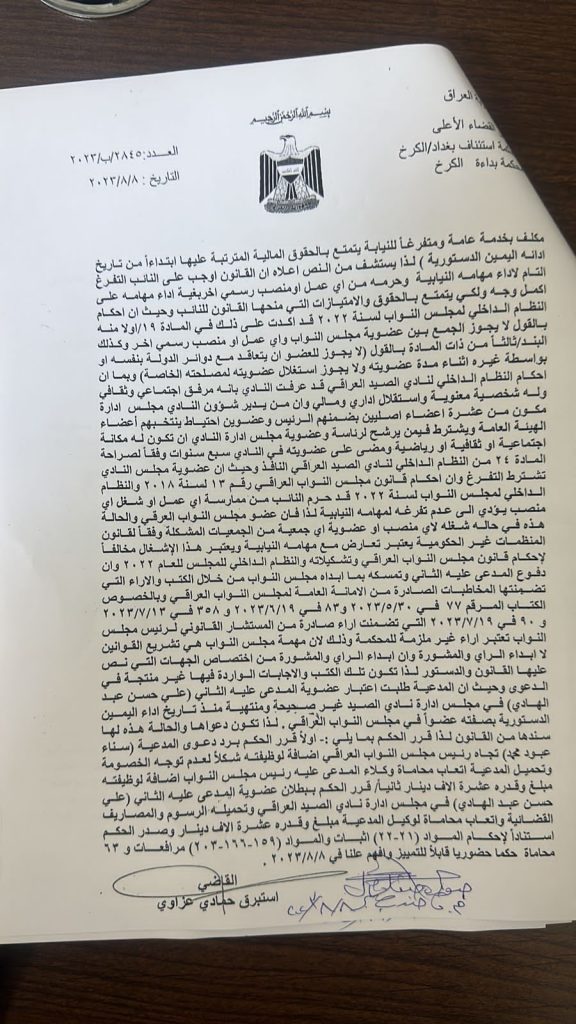 بسم الله الرحمن الرحيم
العراق
القضاء الأعلى
استئناف بغداد/الكرخ
بداءة الكرخ
العدد: ٢٨٤٥/ب/٢٠٢٣
التاريخ : ٢٠٢٣/٨/٨
مكلف بخدمة عامة ومتفرغاً للنيابة يتمتع بالحقوق المالية المترتبة عليها ابتداءاً من تاريخ
ادائه اليمين الدستورية ) لذا يستشف من النص اعلاه ان القانون اوجب على النائب التفرغ
التام لاداء مهامه النيابية وحرمه من اي عمل اومنصب رسمي اخر بغية اداء مهامه على
اكمل وجه ولكي يتمتع بالحقوق والامتيازات التي منحها القانون للنائب وحيث ان احكام
النظام الداخلي لمجلس النواب لسنة ٢٠٢٢ قد اكدت على ذلك في المادة ١٩/اولا منه
بالقول لا يجوز الجمع بين عضوية مجلس النواب واي عمل او منصب رسمي اخر وكذلك
البند/ثالثاً من ذات المادة بالقول (لا يجوز للعضو ان يتعاقد مع دوائر الدولة بنفسه او
بواسطة غيره اثناء مدة عضويته ولا يجوز استغلال عضويته لمصلحته الخاصة) وبما ان
احكام النظام الداخلي لنادي الصيد العراقي قد عرفت النادي بانه مرفق اجتماعي وثقافي
وله شخصية معنوية واستقلال اداري ومالي وان من يدير شؤون النادي مجلس ادارة
مكون من عشرة اعضاء اصليين بضمنهم الرئيس وعضوين احتياط ينتخبهم أعضاء
الهيئة العامة ويشترط فيمن يرشح لرئاسة وعضوية مجلس ادارة النادي ان تكون له مكانة
اجتماعية او ثقافية او رياضية ومضى على عضويته في النادي سبع سنوات وفقاً لصراحة
المادة ٢٤ من النظام الداخلي لنادي الصيد العراقي النافذ وحيث ان عضوية مجلس النادي
تشترط التفرغ وان احكام قانون مجلس النواب العراقي رقم ١٣ لسنة ٢٠١٨ والنظام
الداخلي لمجلس النواب لسنة ٢٠٢٢ قد حرم النائب من ممارسة اي عمل او شغل اي
منصب يؤدي الى عدم تفرغه لمهامه النيابية لذا فان عضو مجلس النواب العرقي والحالة
هذه في حاله شغله لاي منصب او عضوية اي جمعية من الجمعيات المشكلة وفقاً لقانون
المنظمات غير الحكومية يعتبر تعارض مع مهامه النيابية ويعتبر هذا الإشغال مخالفاً
لإحكام قانون مجلس النواب العراقي وتشكيلاته والنظام الداخلي للمجلس للعام ٢٠٢٢ وان
دفوع المدعى عليه الثاني وتمسكه بما ابداه مجلس النواب من خلال الكتب والاراء التي
تضمنتها المخاطبات الصادرة من الامانة العامة لمجلس النواب العراقي وبالخصوص
الكتاب المرقم ٧٧ في ٢٠٢٣/٥/٣٠ و٨٣ في ٢٠٢٣/٦/١٩ و ٣٥٨ في ٢٠٢٣/٧/١٣
و ٩٠ في ٢٠٢٣/٧/١٩ التي تضمنت اراء صادرة من المستشار القانوني لرئيس مجلس
النواب تعتبر اراء غير ملزمة للمحكمة وذلك لان مهمة مجلس النواب هي تشريع القوانين
لا ابداء الراي والمشورة وان ابداء الراي والمشورة من اختصاص الجهات التي نص
عليها القانون والدستور لذا تكون تلك الكتب والاجابات الواردة فيها غير منتجة في
الدعوى وحيث ان المدعية طلبت اعتبار عضوية المدعى عليه الثاني (علي حسن عبد
الهادي) في مجلس ادارة نادي الصيد غير صحيحة ومنتهية منذ تاريخ اداء اليمين
الدستورية بصفته عضواً في مجلس النواب العراقي . لذا تكون دعواها والحالة هذه لها
سندها من القانون لذا قرر الحكم بما يلي :- اولاً قرر الحكم برد دعوى المدعية (سناء
عبود محمد) تجاه رئيس مجلس النواب العراقي اضافة لوظيفته شكلاً لعدم توجه الخصومة
وتحميل المدعية اتعاب محاماة وكلاء المدعى عليه رئيس مجلس النواب اضافة لوظيفته
مبلغ وقدره عشرة الاف دينار ثانياً/ قرر الحكم ببطلان عضوية المدعى عليه الثاني (علي
حسن عبد الهادي) في مجلس ادارة نادي الصيد العراقي وتحميله الرسوم والمصاريف
القضائية واتعاب محاماة لوكيل المدعية مبلغ وقدره عشرة الاف دينار وصدر الحكم
استناداً لإحكام المواد (٢١-٢٢) اثبات والمواد (١٥٩-١٦٦-٢٠٣) مرافعات و ٦٣
محاماة حكما حضوريا قابلاً للتمييز وافهم علنا في ٢٠٢٣/٨/٨ .
القاضي
استبرق حمادي عزاوي